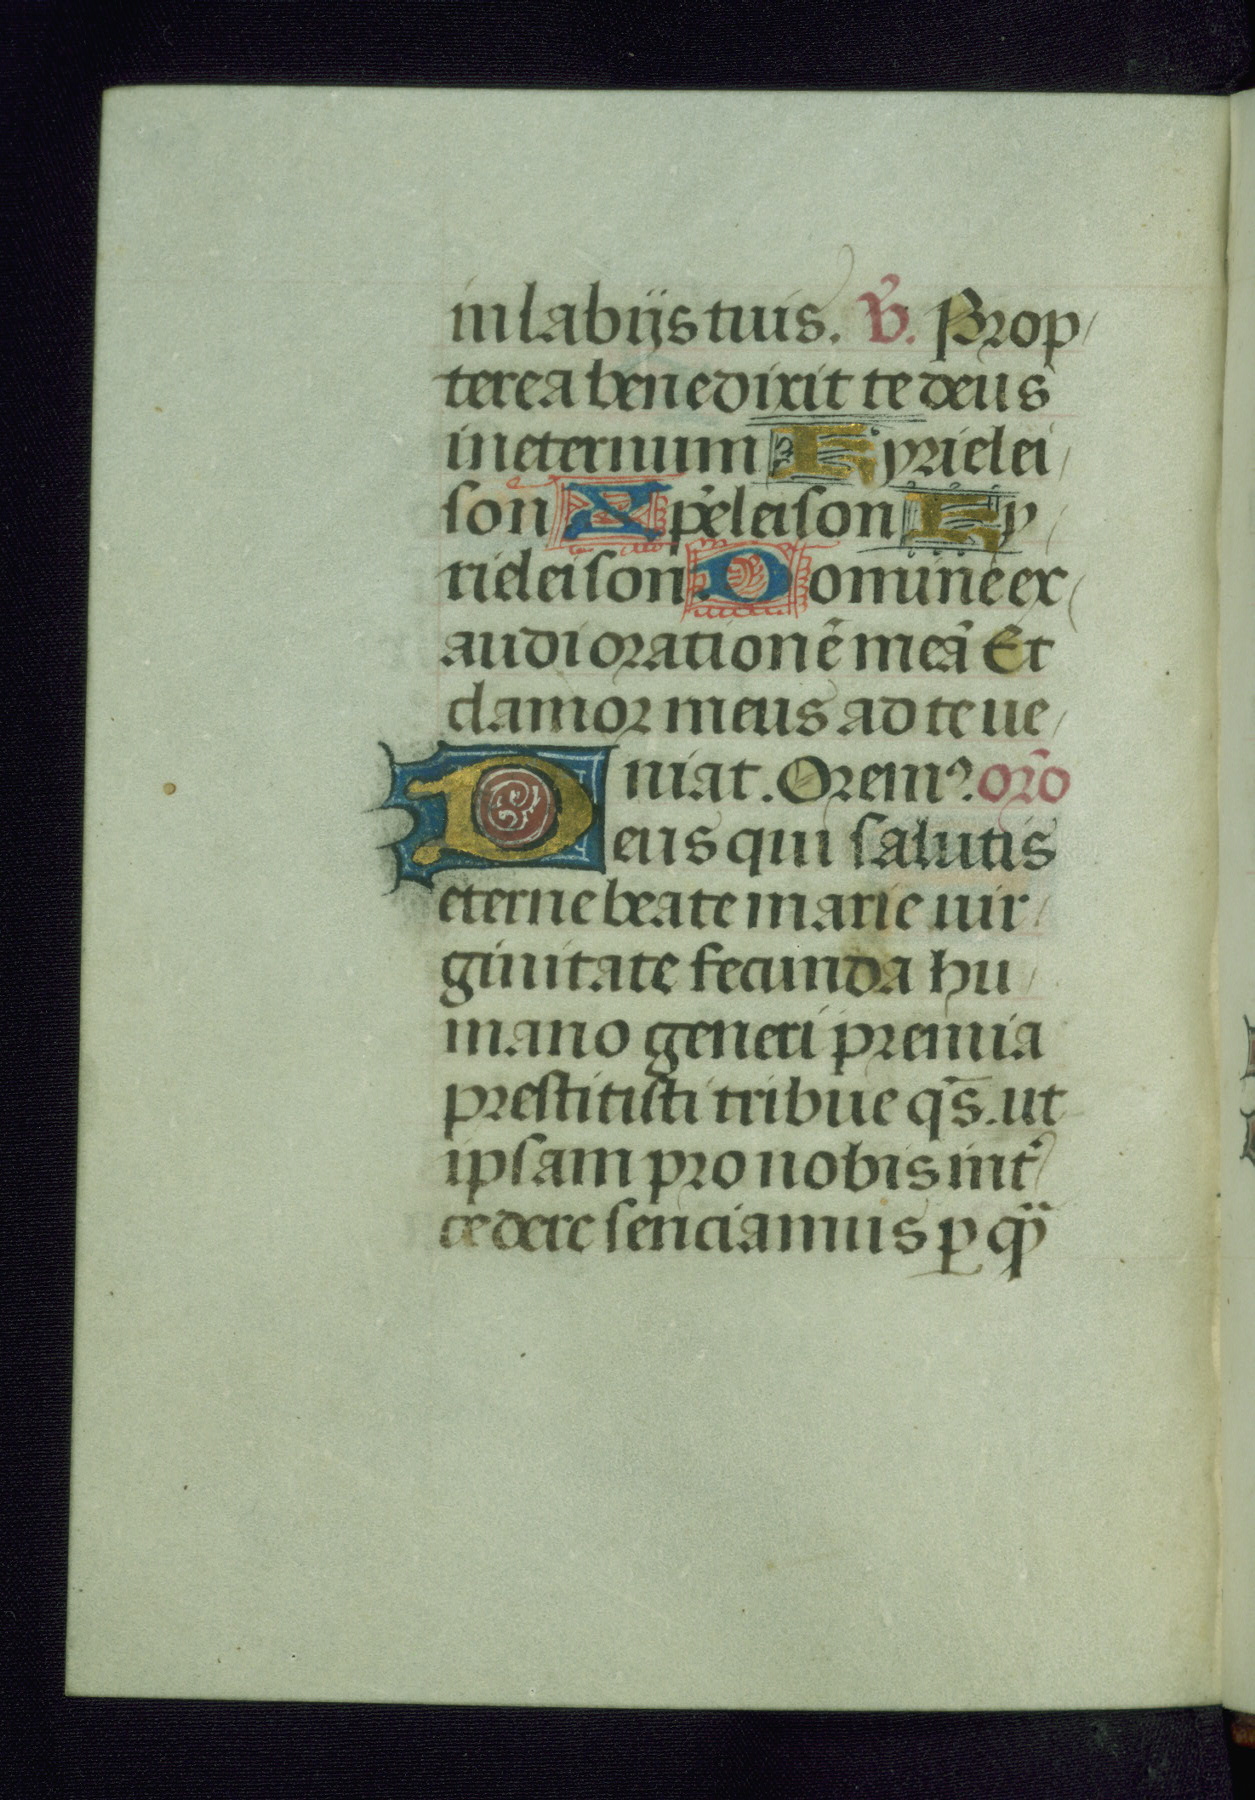 in labijs tuis. V̄. Prop
terea benedixit te deus
in eternum Kyrielei
son Xp̄eleison Ky
rieleison Domine ex
audi orationē meā Et
clamor meus ad te ue
niat. Oremꝰ. or̄o
Deus qui salutis
eterne beate marie uir
ginitate fecunda hu
mano generi premia
prestitisti tribue qs̄. ut
ipsam pro nobis int̾
cedere senciamus ꝑ qm̄